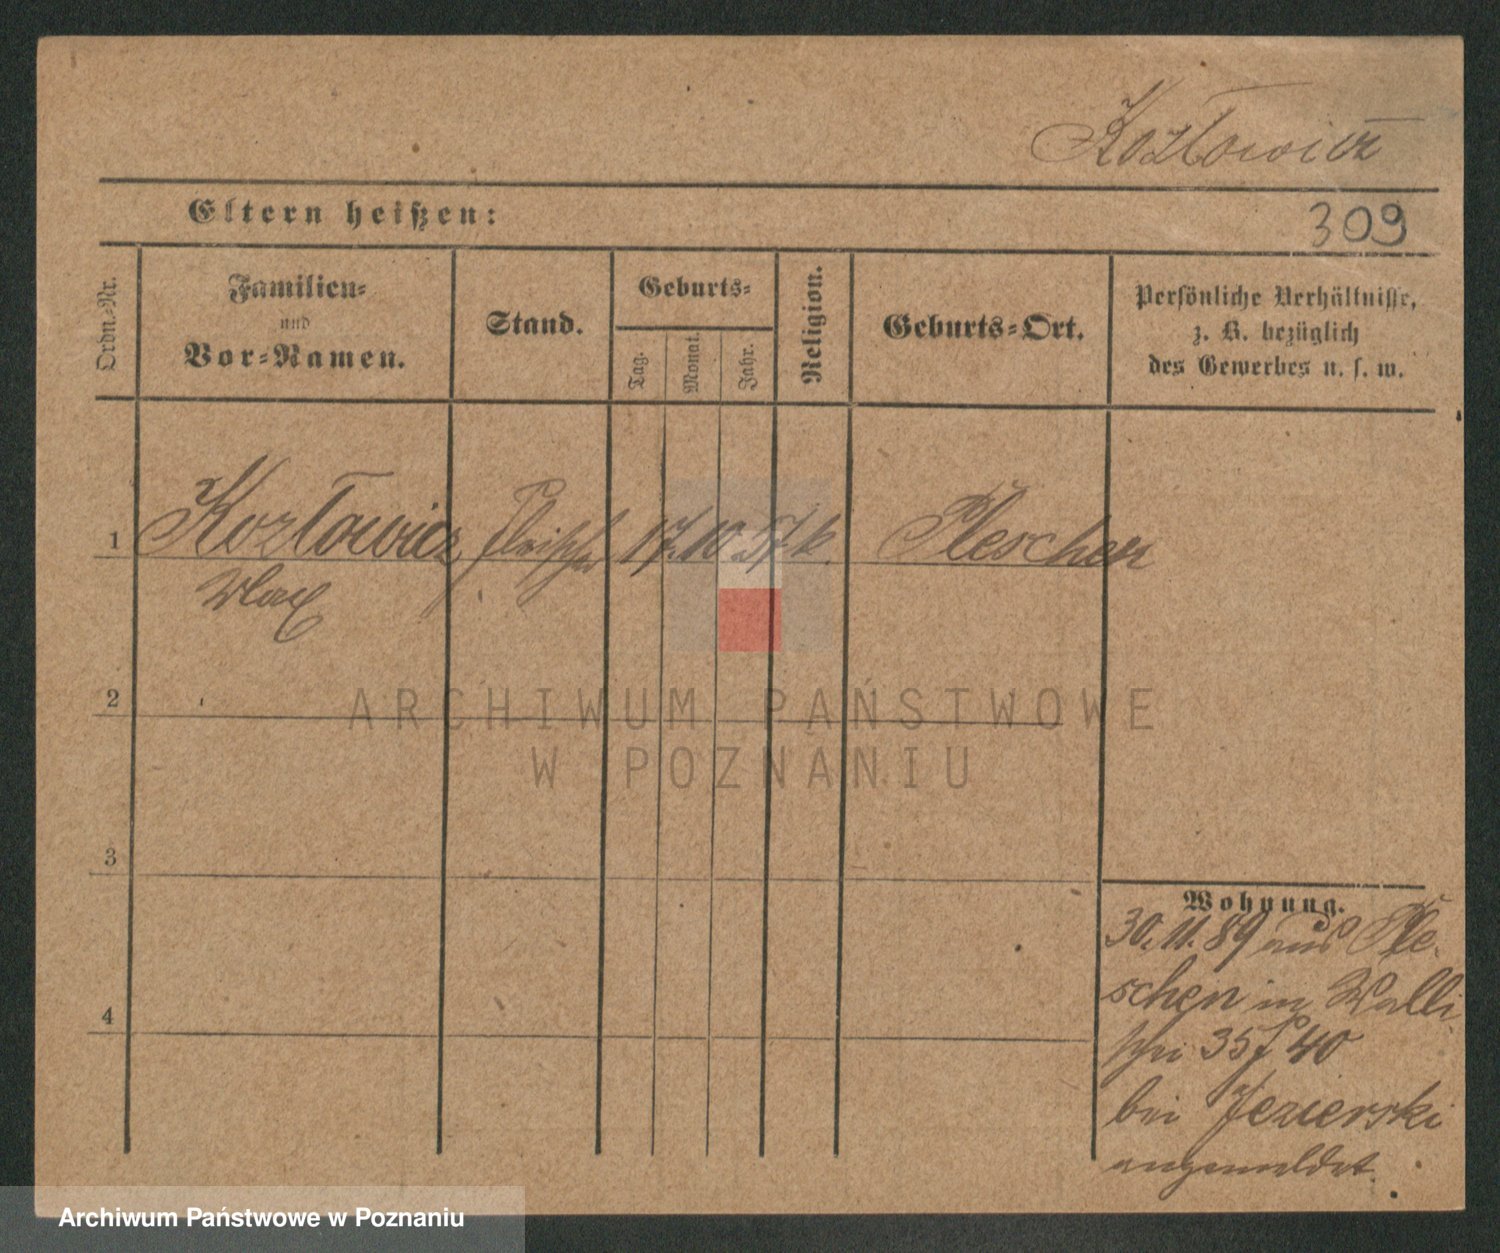 Kozłowicz
Eltern heißen:
309
Ordn.-Nr.
Familien-
und
Vor-Namen.
Stand.
Geburts-
Tag.
Monat.
Jahr.
Religion.
Geburts-Ort.
Persönliche Verhältnisse,
z. B. bezüglich
des Gewerbes u. s. w.
1
Kozłowicz Fleischer 17. 10. 57 k. Pleschen
Max
2
3
4
Wohnung.
30. 11. 89 aus Ple-
schen in Walli
schei 35/40
bei Jezierski
angemeldet.
ARCHIWUM PAŃSTWOWE
W POZNANIU
Archiwum Państwowe w Poznaniu